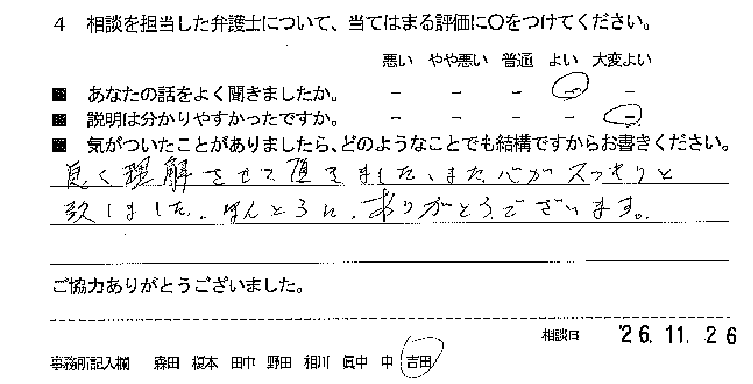 4 相談を担当した弁護士について、当てはまる評価に○をつけてください。
悪い やや悪い 普通 よい 大変よい
■ あなたの話をよく聞きましたか。 - - - - -
■ 説明は分かりやすかったですか。 - - - - -
■ 気がついたことがありましたら、どのようなことでも結構ですからお書きください。
良く理解させて頂きました、また心がスッキリと
致しました。ほんとうに、ありがとうございます。
ご協力ありがとうございました。
相談日 '26.11.26
事務所記入欄 森田 榎本 田中 野田 相川 眞中 中 吉田